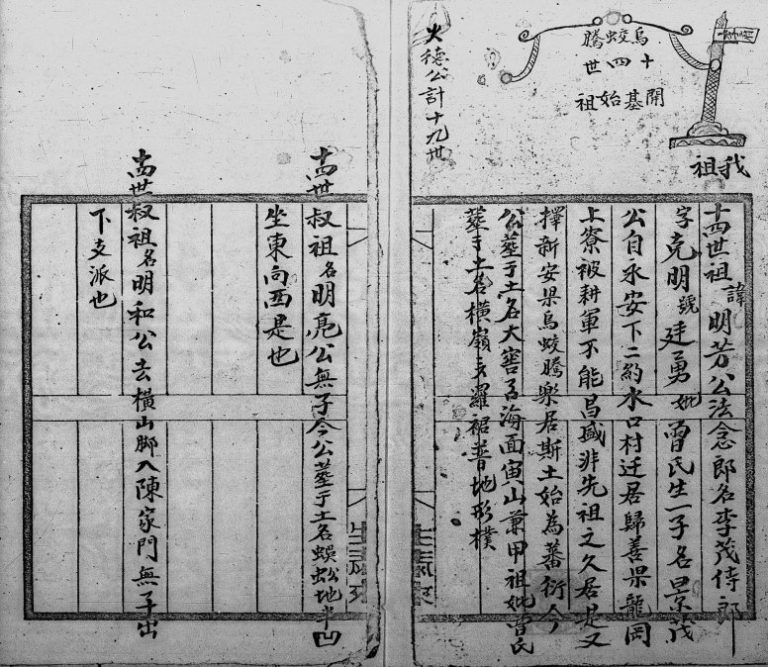 烏蛟騰
十四世
開基始祖
火德公計十九世
我祖
十四世祖諱明芳公法念郎名李茂侍郎
字克明號廷勇妣曾氏生一子名景茂
公自永安下二約水口村迁居歸善県龍岡
上寮被耕軍不能昌盛非先祖之久居是又
擇新安県烏蛟騰樂居斯土始為蕃衍今
公塟于土名大窖名海面寅山兼甲祖妣曾氏
塟于土名橫嶺羅裙普地形樸
十四世叔祖名明亮公無子今公塟于土名蜈蚣地半山
坐東向西是也
十四世叔祖名明和公去橫山脚入陳家門無子出
下支派也